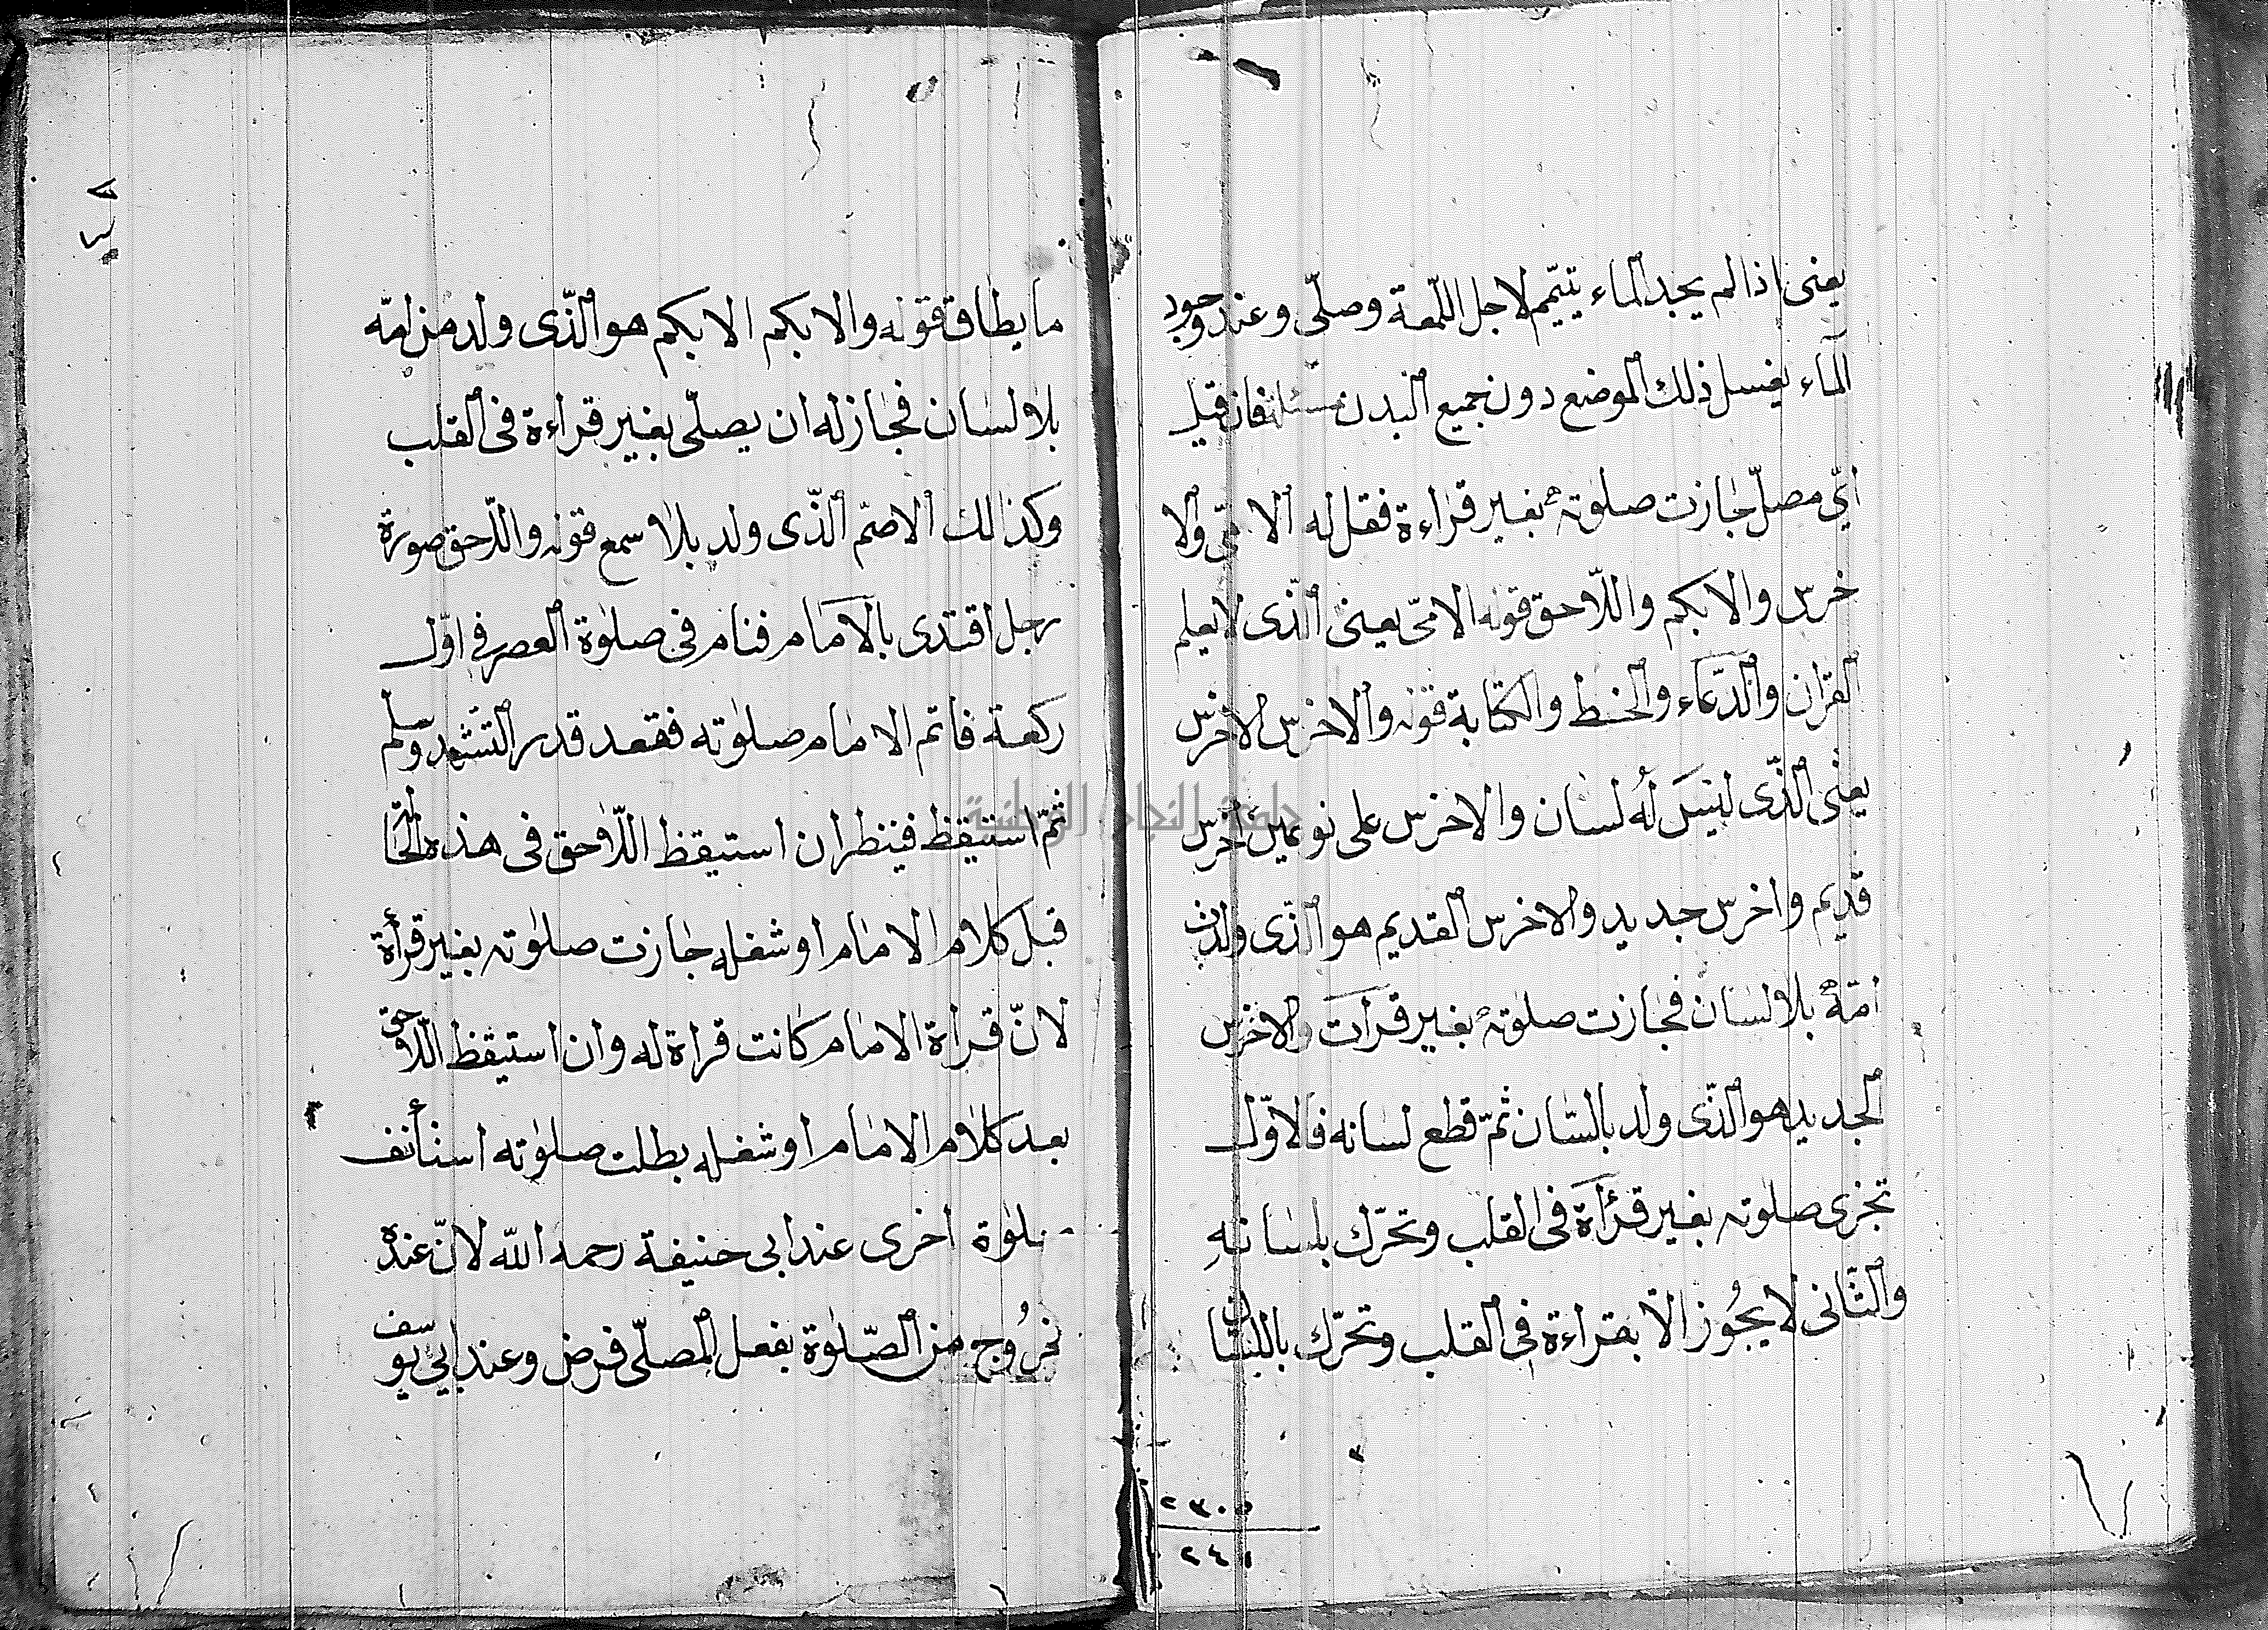 يعنى اذا لم يجد الماء يتيمّم لاجل اللّمعة وصلّى وعند وجود
الماء يغسل ذلك الموضع دون جميع البدن مسئلة فان قيل
اىّ مصلّ جازت صلوته بغير قراءة فقل له الامّى والا
خرس والابكم واللّاحق قوله الامّى يعنى الّذى لا يعلم
القران والدّعاء والخط والكتابة قوله والاخرس الاخرس
يعنى الّذى ليسَ لهُ لسان والاخرس على نوعين اخرس
قديم واخرس جديد والاخرس القديم هو الّذى ولدت
امّهُ بلا لسان فجازت صلوتهُ بغير قرات والاخرس
الجديد هو الّذى ولد بالسّان ثمّ قطع لسانه فالاوّل
تجزى صلوته بغير قرأة فى القلب وتحرّك بلسانه
والثّانى لا يجُوز الّا بقراءة فى القلب وتحرّك باللسان
ما يطاق قوله والابكم الابكم هو الّذى ولد من امّه
بلا لسان فجاز له ان يصلّى بغير قراءة فى القلب
وكذالك الاصمّ الّذى ولد بلا سمع قوله واللّاحق صورة
رجل اقتدى بالامام فنام فى صلوة العصر فى اوّل
ركعة فاتم الامام صلوته فقعد قدر التشهد وسلم
ثمّ استيقظ فينظر ان استيقظ اللّاحق فى هذه الحال
قبل كلام الامام او شغله جازت صلوته بغير قرأة
لانّ قراة الامام كانت قراة له وان استيقظ اللّاحق
بعد كلام الامام او شغله بطلت صلوته استأنف
صلوة اخرى عند ابى حنيفة رحمه اللّه لانّ عنده
خرُوج من الصّلوة بفعل المصلّى فرض وعند ابى يوسف
جامعة النجاح الوطنية
٢٣٠٥